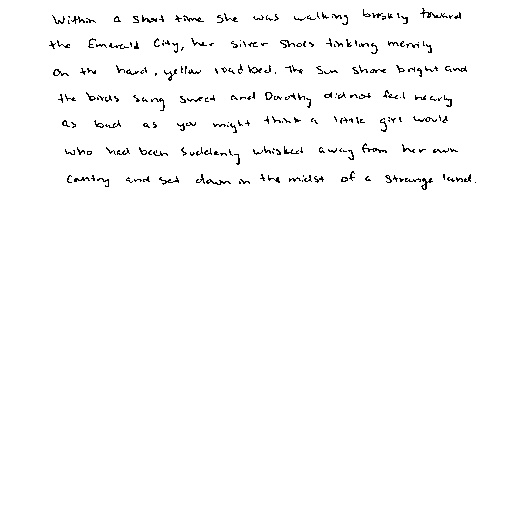 Within a short time she was walking briskly toward
the Emerald City, her Silver Shoes tinkling merrily
on the hard, yellow roadbed. The sun shone bright and
the birds sang sweet and Dorothy did not feel nearly
as bad as you might think a little girl would
who had been suddenly whisked away from her own
country and set down in the midst of a strange land.